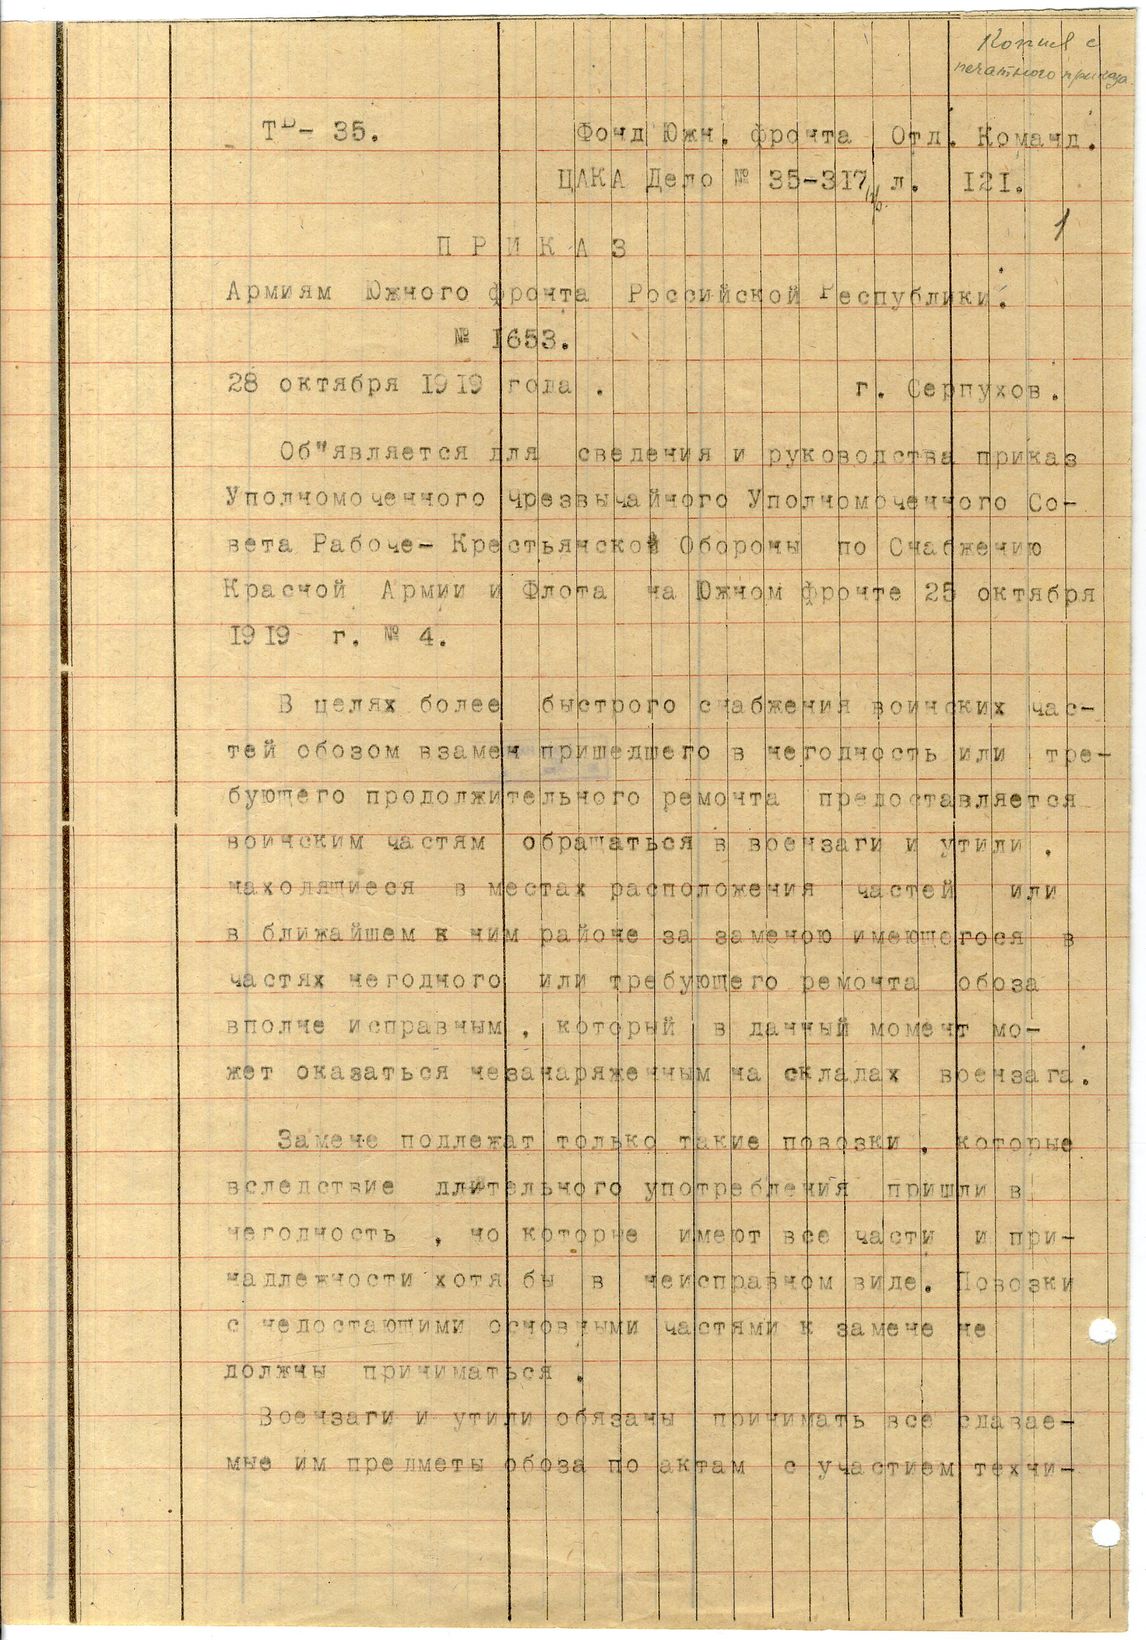 Копия с
печатного приказа.
Тᴰ- 35. Фонд Южн. фронта Отд. Команд.
ЦАКА Дело № 35-317/ л. 121.
1
П Р И К А З
Армиям Южного фронта Российской Республики.
№ 1653.
28 октября 1919 года . г. Серпухов.
Об"является для сведения и руководства приказ
Уполномоченного Чрезвычайного Уполномоченного Со-
вета Рабоче- Крестьянской Обороны по Снабжению
Красной Армии и Флота на Южном фронте 25 октября
1919 г. № 4.
В целях более быстрого снабжения воинских час-
тей обозом взамен пришедшего в негодность или тре-
бующего продолжительного ремонта предоставляется
воинским частям обращаться в воензаги и утили ,
находящиеся в местах расположения частей или
в ближайшем к ним районе за заменою имеющегося в
частях негодного или требующего ремонта обоза
вполне исправным , который в данный момент мо-
жет оказаться незанаряженным на складах воензага.
Замене подлежат только такие повозки , которые
вследствие длительного употребления пришли в
негодность , но которые имеют все части и при-
надлежности хотя бы в неисправном виде. Повозки
с недостающими основными частями к замене не
должны приниматься .
Воензаги и утили обязаны принимать все сдавае-
мые им предметы обоза по актам с участием техни-